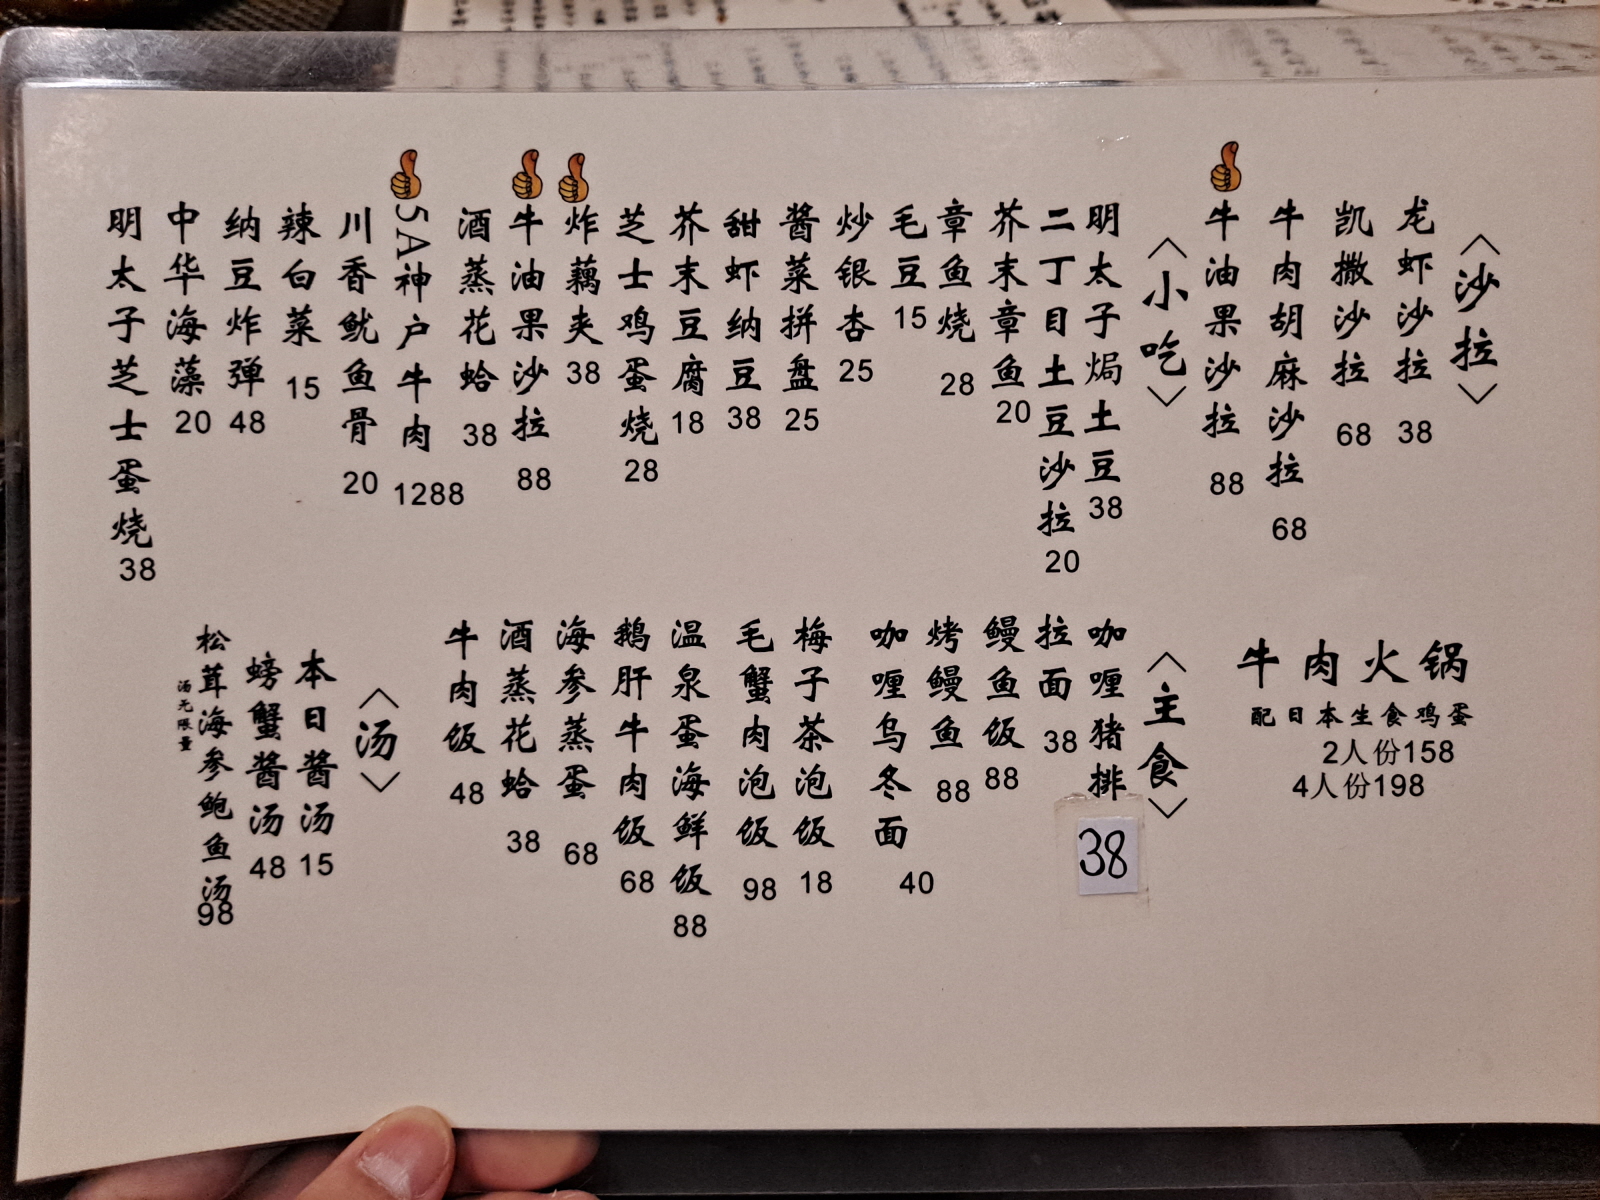 〈沙拉〉
龙虾沙拉 38
凯撒沙拉 68
牛肉胡麻沙拉 68
牛油果沙拉 88
〈小吃〉
明太子焗土豆 38
二丁目土豆沙拉 20
芥末章鱼 20
章鱼烧 28
毛豆 15
炒银杏 25
酱菜拼盘 25
甜虾纳豆 38
芥末豆腐 18
芝士鸡蛋烧 28
炸藕夹 38
牛油果沙拉 88
酒蒸花蛤 38
5A神户牛肉 1288
川香鱿鱼骨 20
辣白菜 15
纳豆炸弹 48
中华海藻 20
明太子芝士蛋烧 38
牛肉火锅
配日本生食鸡蛋
2人份158
4人份198
〈主食〉
咖喱猪排 38
拉面 38
鳗鱼饭 88
烤鳗鱼 88
咖喱乌冬面 40
梅子茶泡饭 18
毛蟹肉泡饭 98
温泉蛋海鲜饭 88
鹅肝牛肉饭 68
海参蒸蛋 68
酒蒸花蛤 38
牛肉饭 48
〈汤〉
本日酱汤 15
螃蟹酱汤 48
松茸海参鲍鱼汤 98
汤无限量